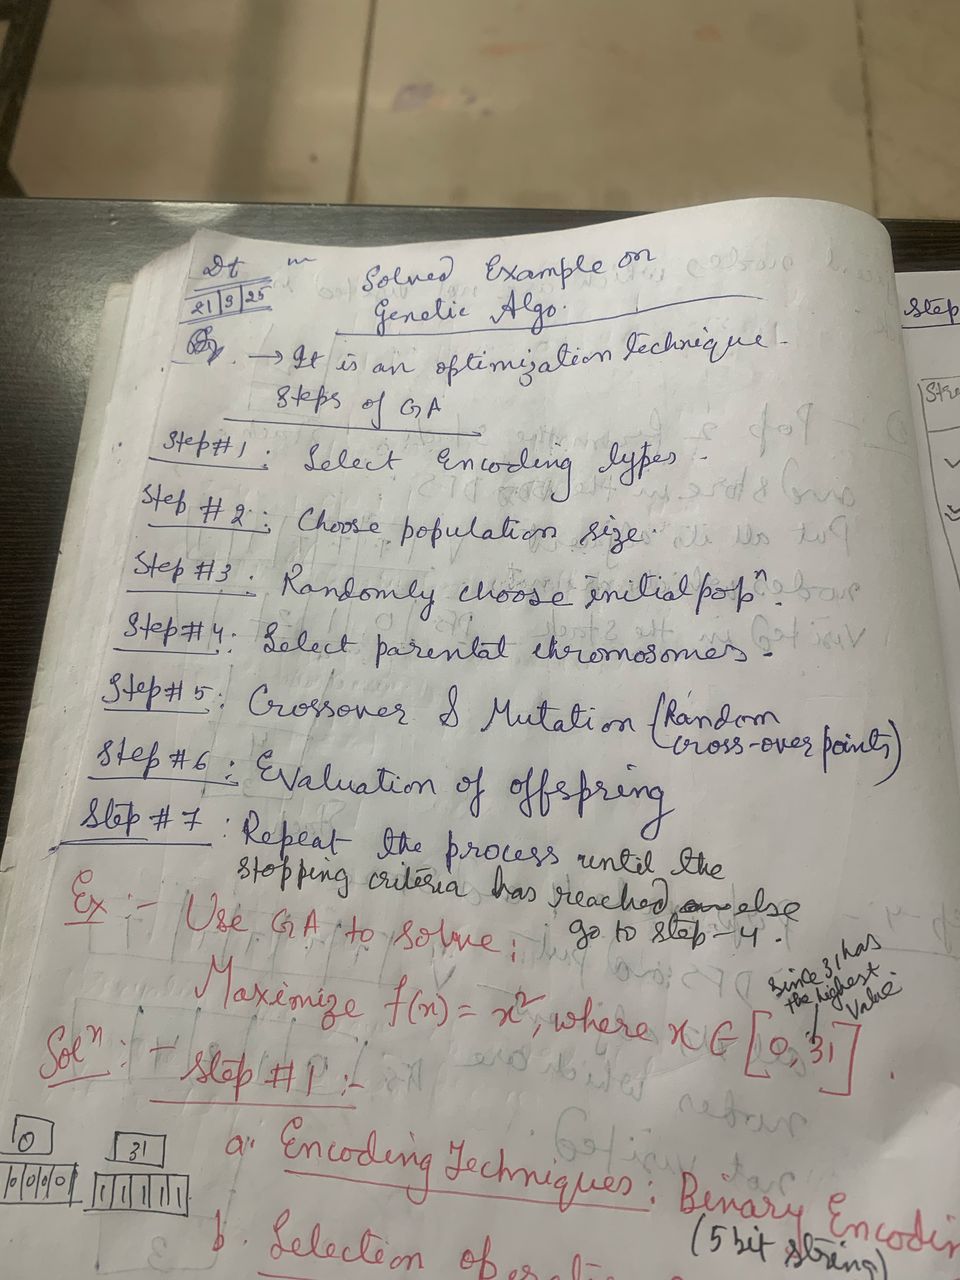 Dt
21/3/25
Solved Example on
Genetic Algo.
→ It is an optimization technique.
Steps of GA
Step#1 : Select Encoding types.
Step #2 : Choose population size.
Step #3 : Randomly choose initial popⁿ.
Step#4 : Select parental chromosomes.
Step#5 : Crossover & Mutation (Random
cross-over points)
Step #6 : Evaluation of offspring
Step #7 : Repeat the process until the
stopping criteria has reached else
go to step-4.
Ex :- Use GA to solve :
Maximize f(x) = x², where x ∈ [0, 31].
since 31 has
the highest
value
Solⁿ :- Step #1 :-
0
00000
31
11111
a. Encoding Techniques : Binary Encodin
(5 bit string)
b. Selection
Step